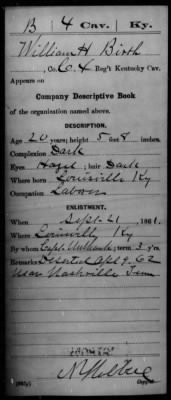 B 4 Cav. Ky.
William H Birth
, Co. C, 4 Reg't Kentucky Cav.
Appears on
Company Descriptive Book
of the organization named above.
DESCRIPTION.
Age 20 years; height 5 feet 8 inches.
Complexion Dark
Eyes Hazel; hair Dark
Where born Louisville Ky
Occupation Laborer
ENLISTMENT.
When Sept. 21, 1861.
Where Louisville Ky
By whom Capt. ; term 3 y'rs.
Remarks Deserted Apl 9. 62
near Nashville Tenn
Copyist.